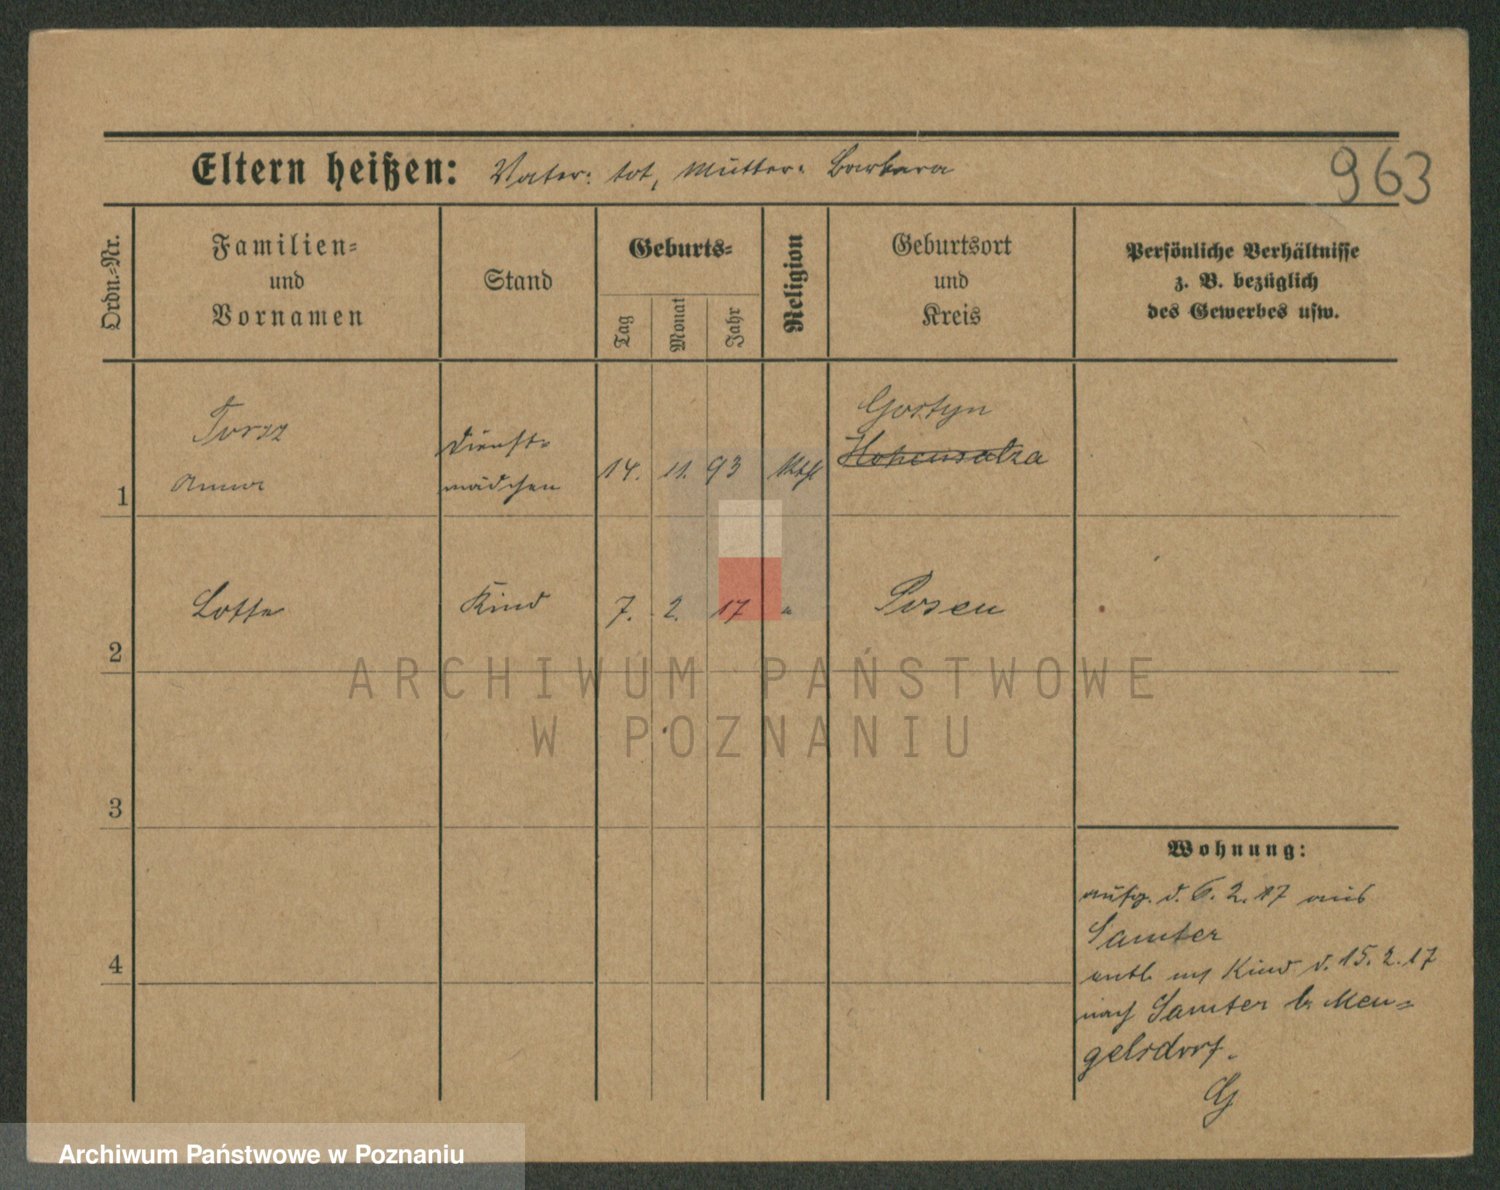 963
Eltern heißen: Vater: tot, Mutter: Barbara
Ordn.-Nr.
Familien-
und
Vornamen
Stand
Geburts-
Tag
Monat
Jahr
Religion
Geburtsort
und
Kreis
Persönliche Verhältnisse
z. B. bezüglich
des Gewerbes usw.
1
Torzz
Anna
Dienst-
mädchen
14. 11. 93
kath
Gostyn
Hohensalza
2
Lotte
Kind
7. 2. 17
"
Posen
3
4
Wohnung:
aufg. d. 6. 2. 17 aus
Samter
entl. mit Kind d. 15. 2. 17
nach Samter b. Men-
gelsdorf.
ARCHIWUM PAŃSTWOWE
W POZNANIU
Archiwum Państwowe w Poznaniu